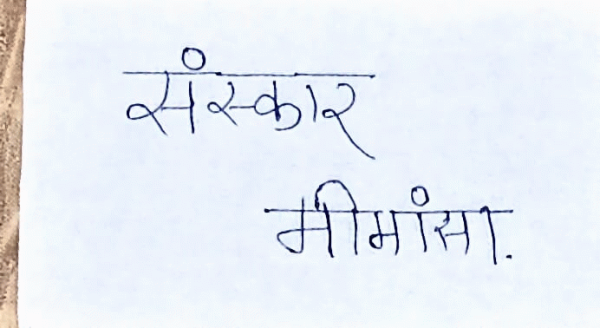 संस्कार
मीमांसा.